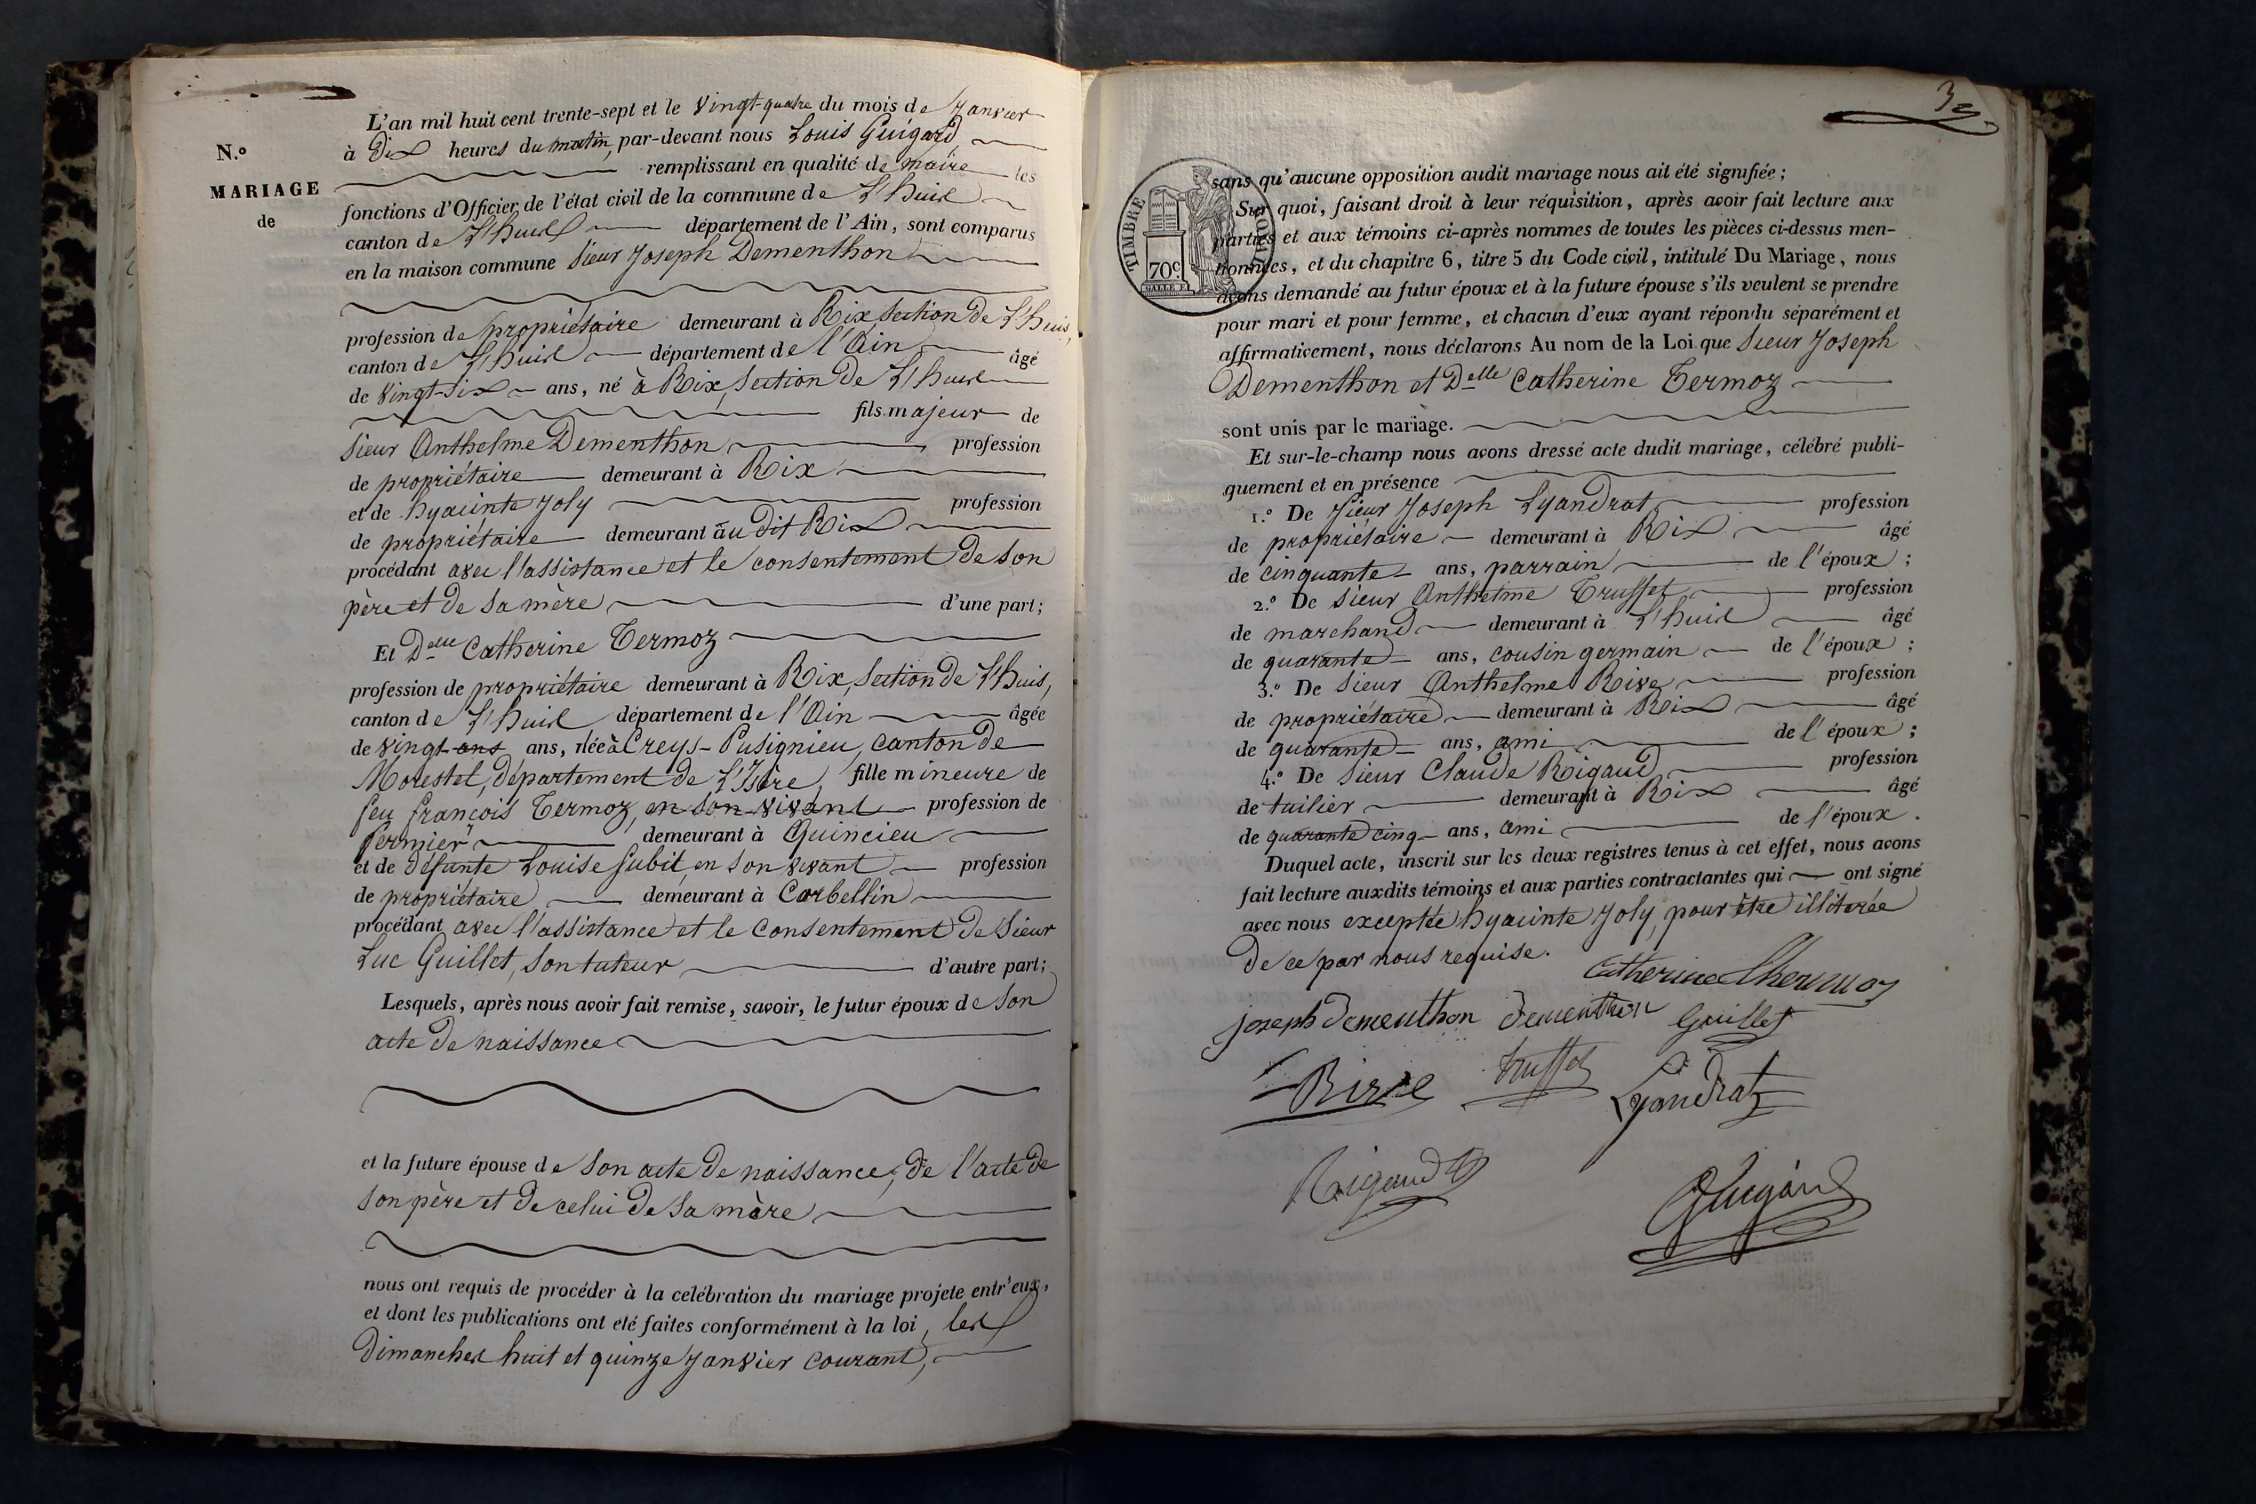 N.º
MARIAGE
de
L'an mil huit cent trente-sept et le Vingt-quatre du mois de Janvier
à Dix heures du matin, par-devant nous Louis Guigard,
remplissant en qualité de maire les
fonctions d'Officier de l'état civil de la commune de L'huis
canton de L'huis département de l'Ain, sont comparus
en la maison commune Sieur Joseph Dementhon
profession de propriétaire demeurant à Rix section de L'huis,
canton de L'huis département de l'Ain âgé
de Vingt-six ans, né à Rix, section de L'huis
fils majeur de
Sieur Anthelme Dementhon profession
de propriétaire demeurant à Rix
et de hyacinte Joly profession
de propriétaire demeurant au dit Rix
procédant avec l'assistance et le consentement de son
père et de sa mère d'une part;
Et Delle Catherine Termoz
profession de propriétaire demeurant à Rix, section de L'huis,
canton de L'huis département de l'Ain âgée
de vingt ans ans, née à Creys-Pusignieu, canton de
Morestel, département de L'Isère, fille mineure de
feu françois Termoz, en son vivant profession de
fermier demeurant à Quincieu
et de défunte Louise Subit, en son vivant profession
de propriétaire demeurant à Corbellin
procédant avec l'assistance et le consentement de Sieur
Luc Guillet, son tuteur d'autre part;
Lesquels, après nous avoir fait remise, savoir, le futur époux de son
acte de naissance
et la future épouse de son acte de naissance, de l'acte de
son père et de celui de sa mère
nous ont requis de procéder à la celébration du mariage projete entr'eux,
et dont les publications ont eté faites conformément à la loi, les
dimanches huit et quinze Janvier courant,
39
TIMBRE ROYAL
70c.
sans qu'aucune opposition audit mariage nous ait été signifiée;
Sur quoi, faisant droit à leur réquisition, après avoir fait lecture aux
parties et aux témoins ci-après nommes de toutes les pièces ci-dessus men-
tionnées, et du chapitre 6, titre 5 du Code civil, intitulé Du Mariage, nous
avons demandé au futur époux et à la future épouse s'ils veulent se prendre
pour mari et pour femme, et chacun d'eux ayant répondu séparément et
affirmativement, nous déclarons Au nom de la Loi que Sieur Joseph
Dementhon et Delle Catherine Termoz
sont unis par le mariage.
Et sur-le-champ nous avons dressé acte dudit mariage, célébré publi-
quement et en présence
1.º De Sieur Joseph Lyandrat profession
de propriétaire demeurant à Rix âgé
de cinquante ans, parrain de l'époux;
2.º De Sieur Anthelme Truffet profession
de marchand demeurant à L'huis âgé
de quarante ans, cousin germain de l'époux;
3.º De Sieur Anthelme Rive profession
de propriétaire demeurant à Rix âgé
de quarante ans, ami de l'époux;
4.º De Sieur Claude Rigaud profession
de tuilier demeurant à Rix âgé
de quarante cinq ans, ami de l'époux.
Duquel acte, inscrit sur les deux registres tenus à cet effet, nous avons
fait lecture auxdits témoins et aux parties contractantes qui ont signé
avec nous exceptée hyacinte Joly, pour être illitérée
de ce par nous requise.
Catherine Thermoz
joseph Dementhon dementhon Guillet
Rive truffet Lyandrat
Rigaud
Guigard